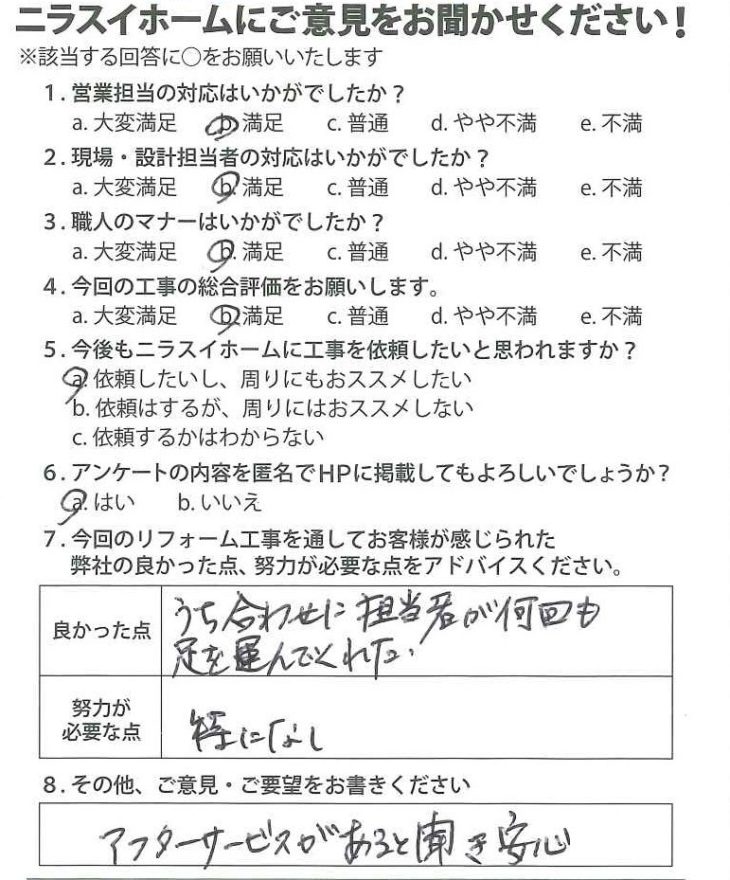 ニラスイホームにご意見をお聞かせください!
※該当する回答に○をお願いいたします
1.営業担当の対応はいかがでしたか?
a.大変満足 b.満足 c.普通 d.やや不満 e.不満
2.現場・設計担当者の対応はいかがでしたか?
a.大変満足 b.満足 c.普通 d.やや不満 e.不満
3.職人のマナーはいかがでしたか?
a.大変満足 b.満足 c.普通 d.やや不満 e.不満
4.今回の工事の総合評価をお願いします。
a.大変満足 b.満足 c.普通 d.やや不満 e.不満
5.今後もニラスイホームに工事を依頼したいと思われますか?
a.依頼したいし、周りにもおススメしたい
b.依頼はするが、周りにはおススメしない
c.依頼するかはわからない
6.アンケートの内容を匿名でHPに掲載してもよろしいでしょうか?
a.はい b.いいえ
7.今回のリフォーム工事を通してお客様が感じられた
弊社の良かった点、努力が必要な点をアドバイスください。
良かった点
うち合わせに担当者が何回も
足を運んでくれた。
努力が
必要な点
特になし
8.その他、ご意見・ご要望をお書きください
アフターサービスがあると聞き安心